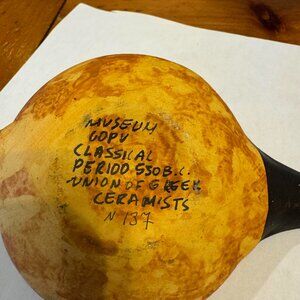 MUSEUM
COPY
CLASSICAL
PERIOD 550 B.C.
UNION OF GREEK
CERAMISTS
N 137